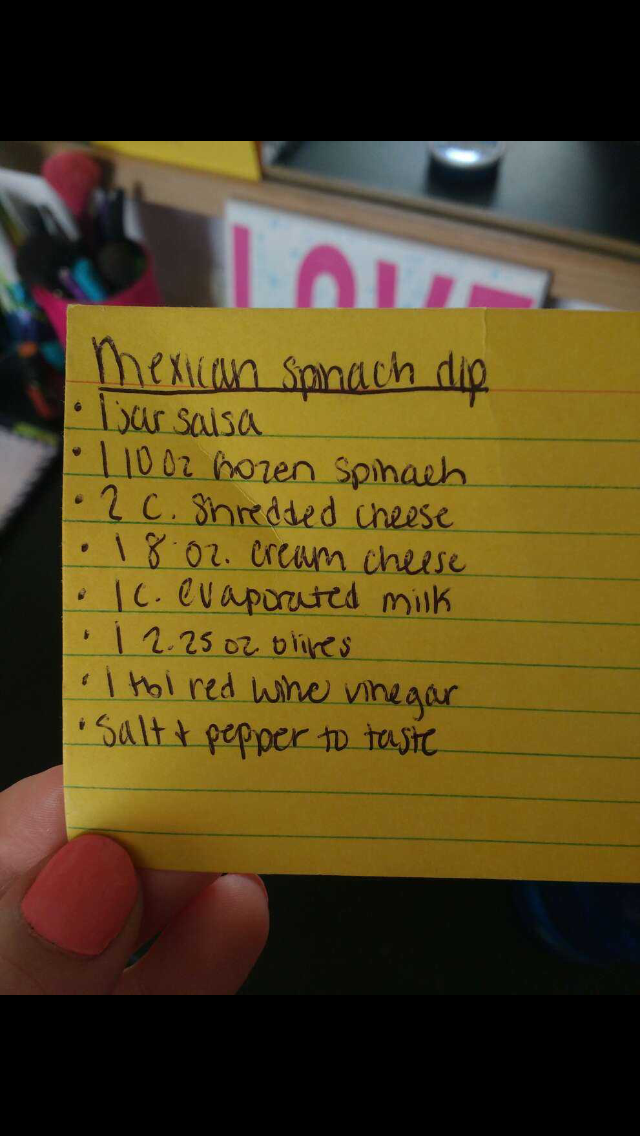 LOVE
Mexican spinach dip
• 1 jar salsa
• 1 10 oz frozen spinach
• 2 c. shredded cheese
• 1 8 oz. cream cheese
• 1 c. evaporated milk
• 1 2.25 oz olives
• 1 tbl red wine vinegar
• Salt + pepper to taste